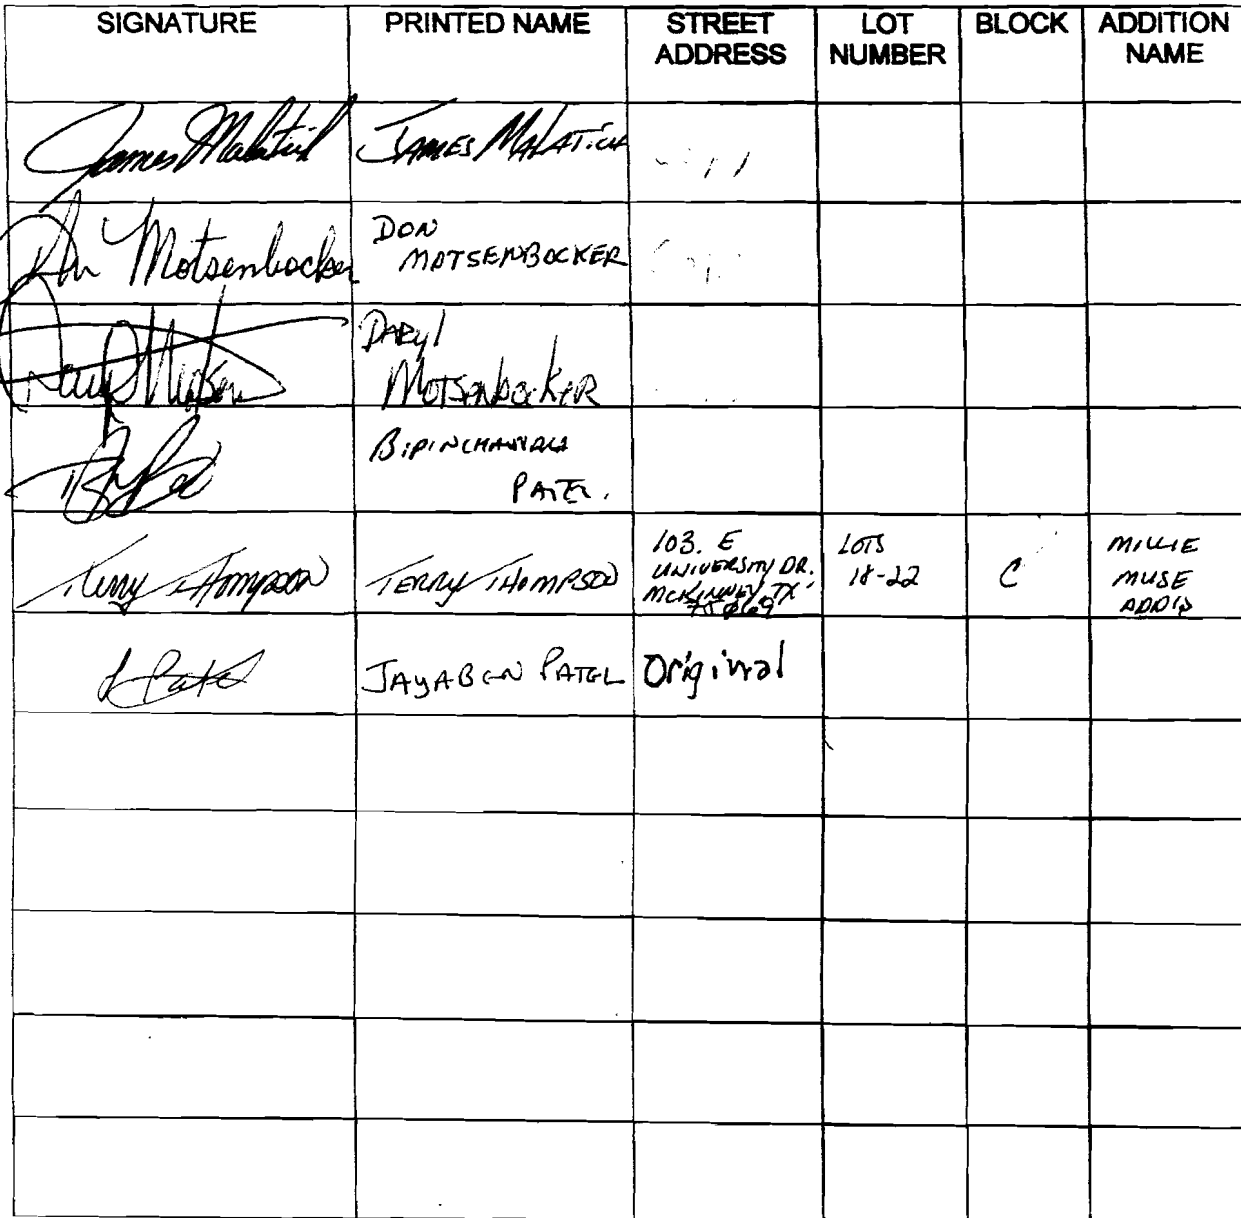 SIGNATURE PRINTED NAME STREET ADDRESS LOT NUMBER BLOCK ADDITION NAME
James Malatich JAMES MALATICH
Don Motsenbocker DON MOTSENBOCKER
DARYL MOTSENBOCKER
BIPINCHANDRA PATEL.
Terry Thompson TERRY THOMPSON 103. E UNIVERSITY DR. MCKINNEY, TX 75069 LOTS 18-22 C MILLIE MUSE ADDIN
J Patel JAYABEN PATEL Original